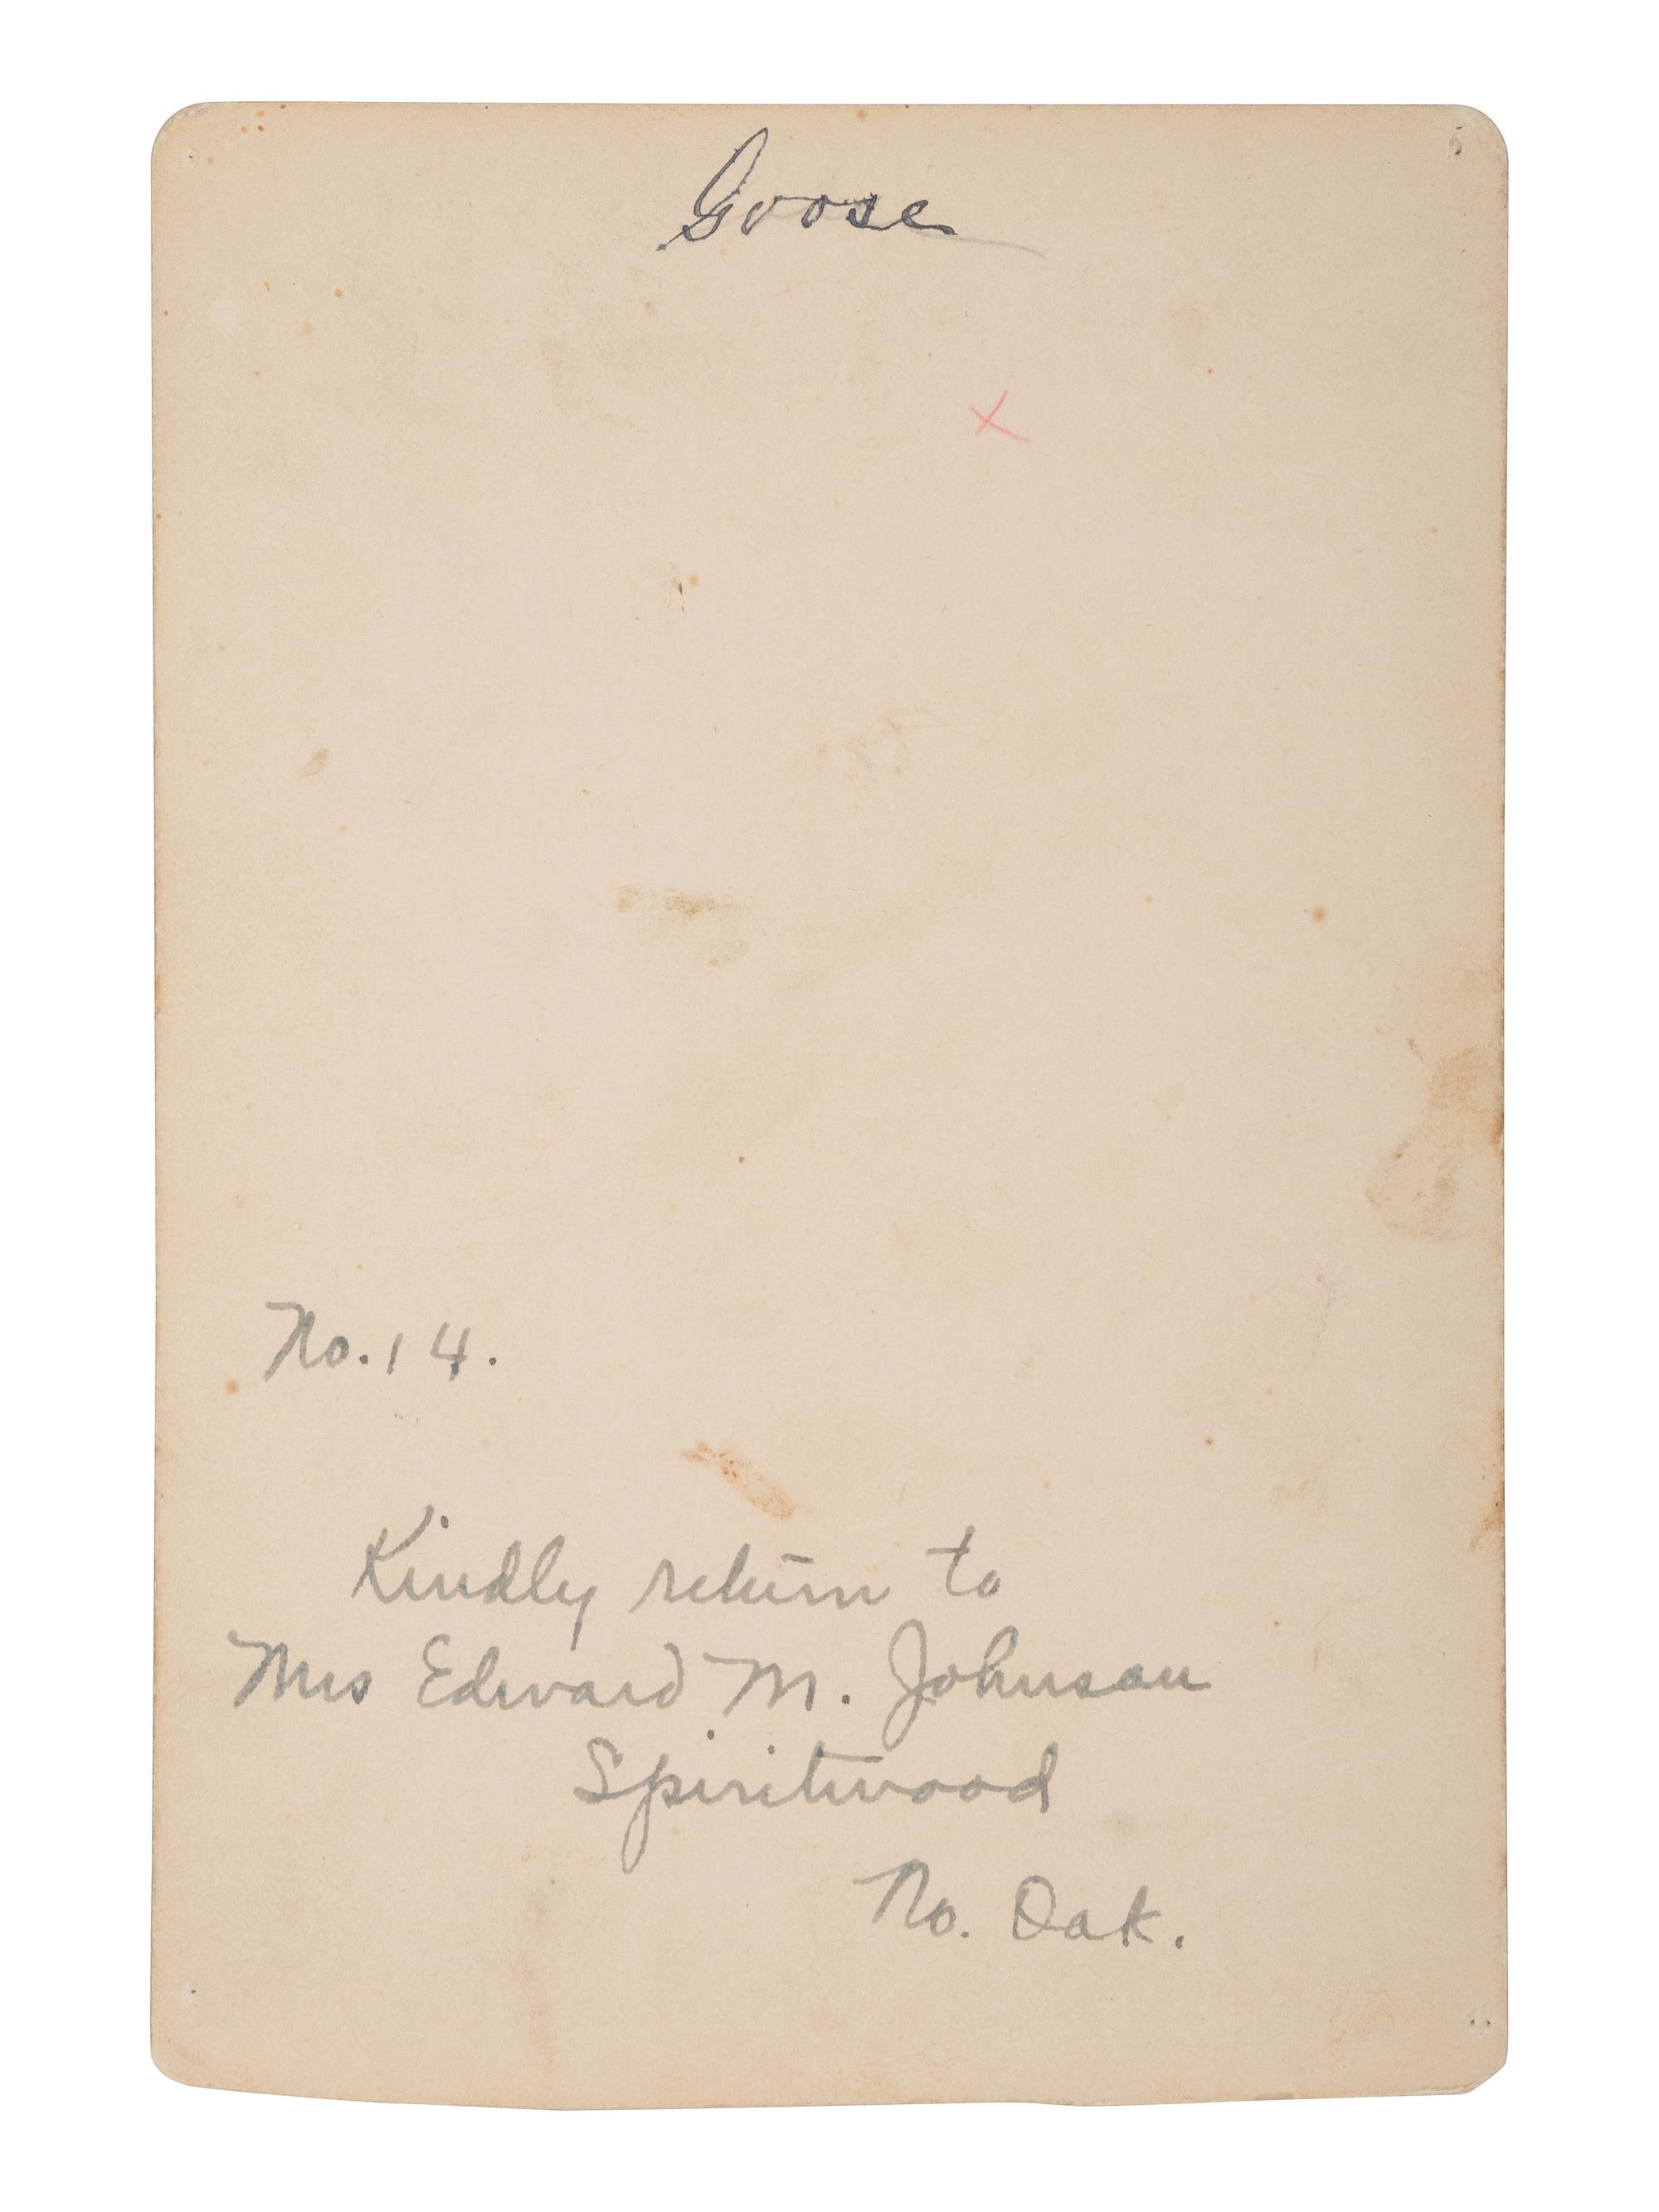 Goose
x
No. 14.
Kindly return to
Mrs Edward M. Johnson
Spiritwood
No. Dak.